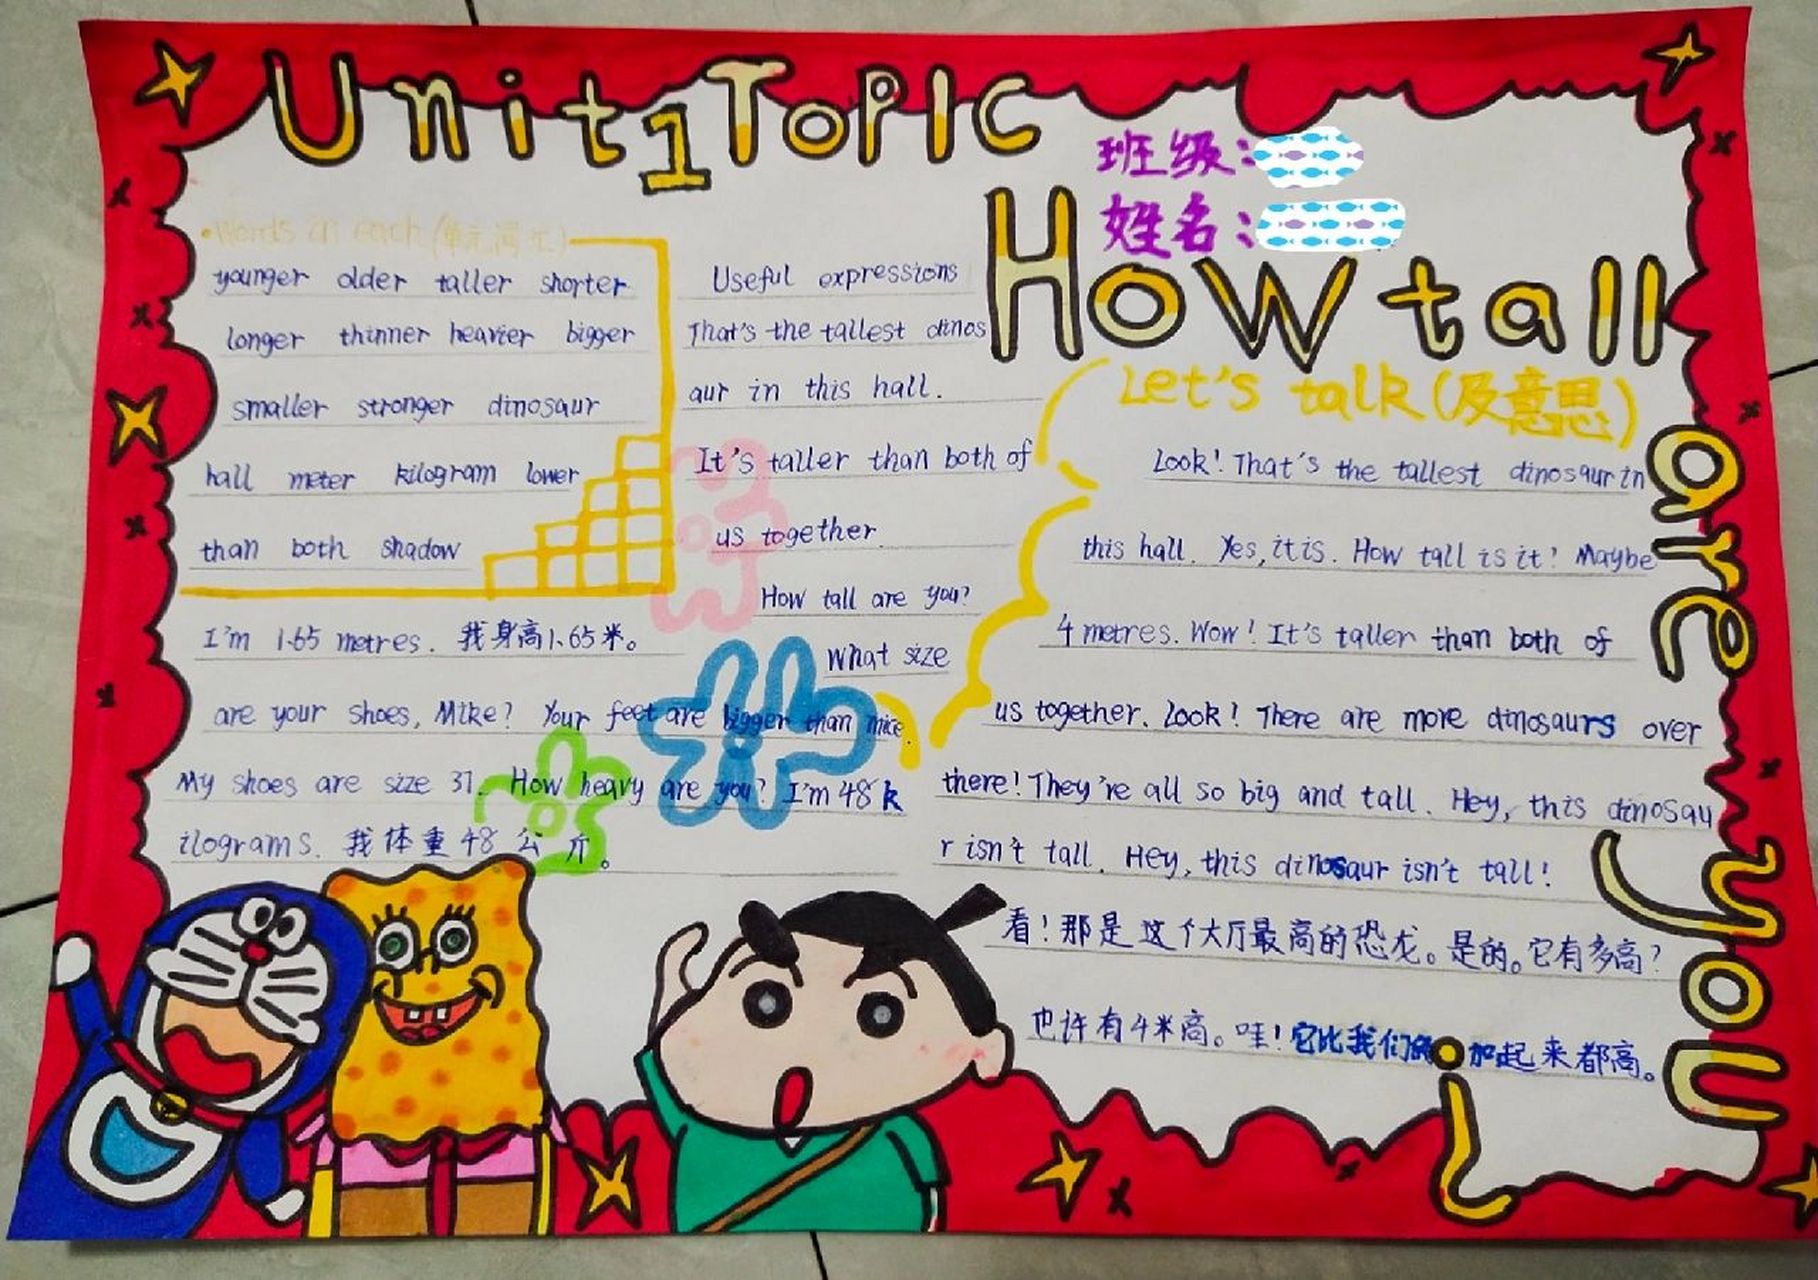 Unit1 Topic
班级:
姓名:
How tall are you?
Words in each (单元词汇)
younger older taller shorter
longer thinner heavier bigger
smaller stronger dinosaur
hall meter kilogram lower
than both shadow
Useful expressions
That's the tallest dinos
aur in this hall.
It's taller than both of
us together.
How tall are you?
I'm 1.65 metres. 我身高1.65米。
What size
are your shoes, Mike? Your feet are bigger than mine.
My shoes are size 37. How heavy are you? I'm 48 k
ilograms. 我体重48公斤。
Let's talk (及意思)
Look! That's the tallest dinosaur in
this hall. Yes, it is. How tall is it? Maybe
4 metres. Wow! It's taller than both of
us together. Look! There are more dinosaurs over
there! They're all so big and tall. Hey, this dinosau
r isn't tall. Hey, this dinosaur isn't tall!
看!那是这个大厅最高的恐龙。是的。它有多高?
也许有4米高。哇!它比我们 加起来都高。